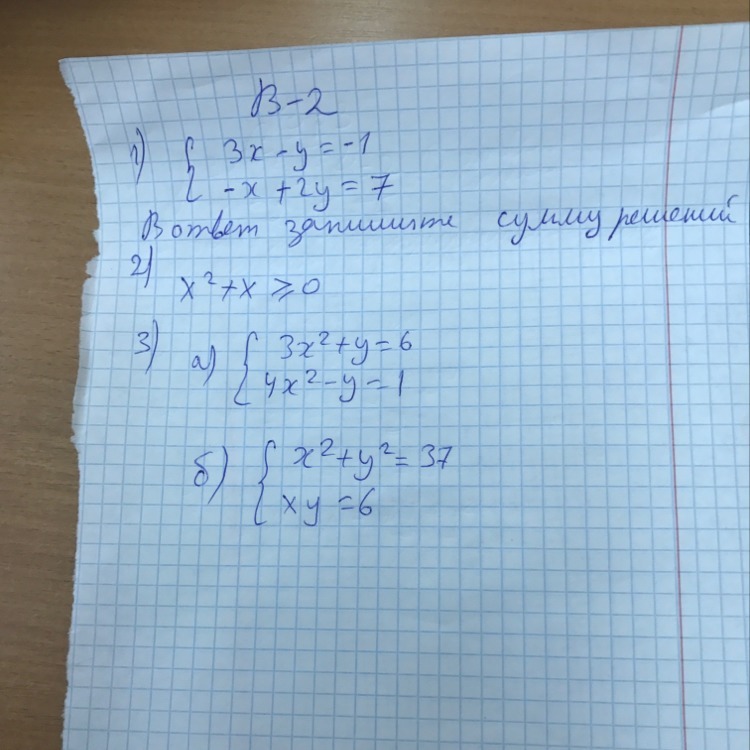 В-2
1) { 3x - y = -1
-x + 2y = 7
В ответ запишите сумму решений
2) x² + x ⩾ 0
3) а) { 3x² + y = 6
4x² - y = 1
б) { x² + y² = 37
xy = 6